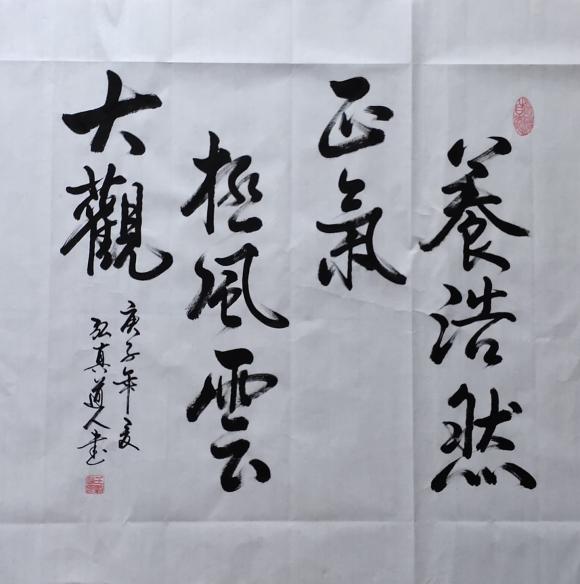 養浩然
正氣
極風雲
大觀
庚子年夏
弘真道人書